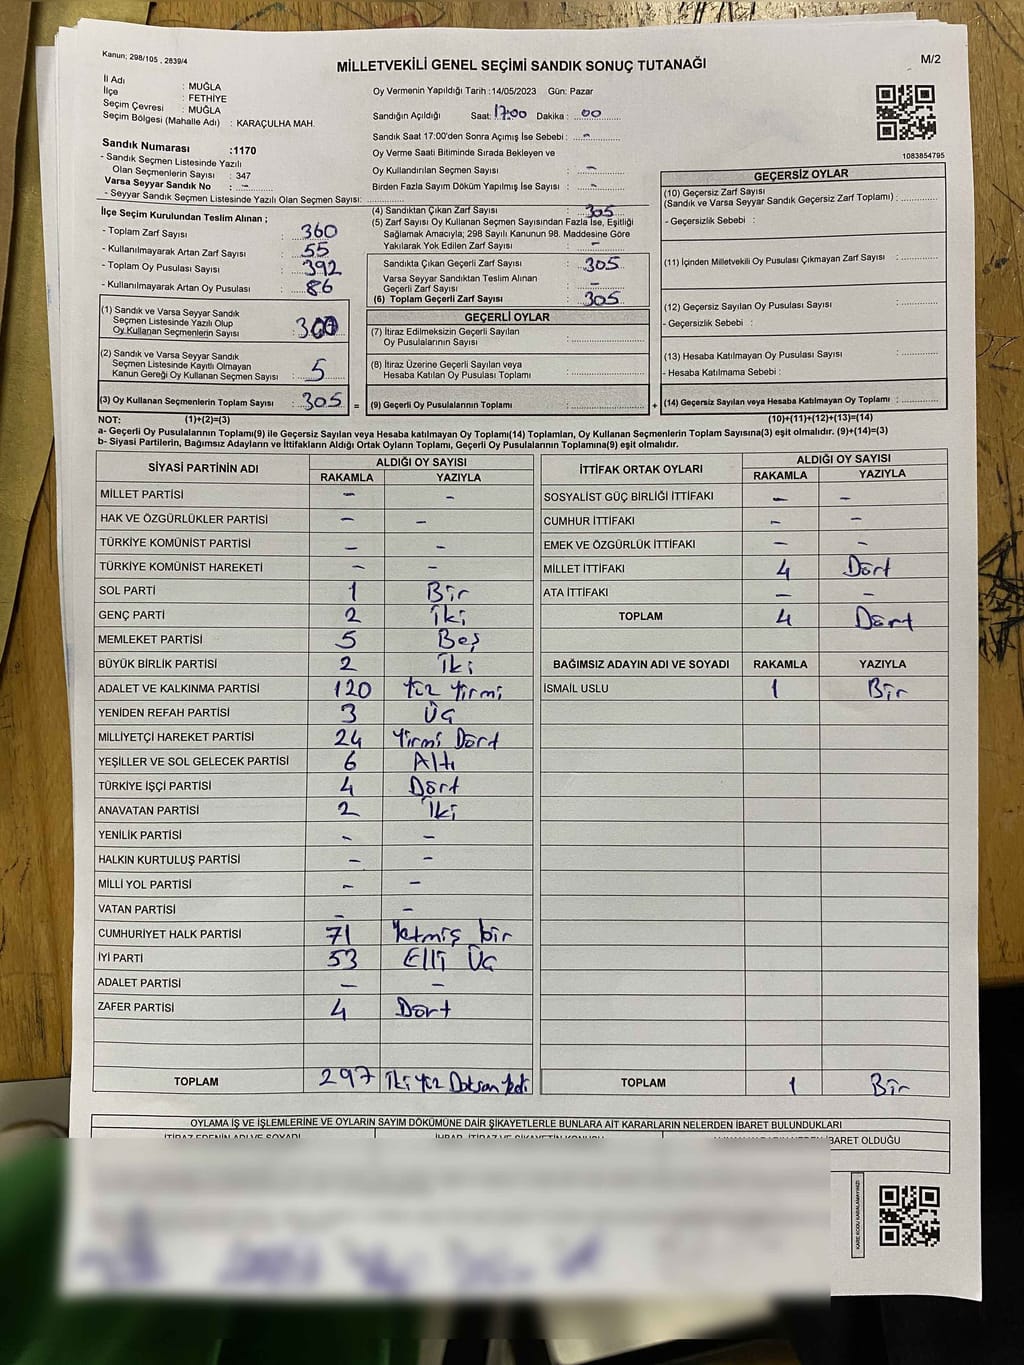 Kanun; 298/105 , 2839/4
MİLLETVEKİLİ GENEL SEÇİMİ SANDIK SONUÇ TUTANAĞI
M/2
İl Adı : MUĞLA
İlçe : FETHİYE
Seçim Çevresi : MUĞLA
Seçim Bölgesi (Mahalle Adı) : KARAÇULHA MAH.
Sandık Numarası :1170
- Sandık Seçmen Listesinde Yazılı
Olan Seçmenlerin Sayısı : 347
Varsa Seyyar Sandık No : -
- Seyyar Sandık Seçmen Listesinde Yazılı Olan Seçmen Sayısı:
Oy Vermenin Yapıldığı Tarih :14/05/2023 Gün: Pazar
Sandığın Açıldığı Saat: 17:00 Dakika : 00
Sandık Saat 17:00'den Sonra Açımış İse Sebebi : -
Oy Verme Saati Bitiminde Sırada Bekleyen ve
Oy Kullandırılan Seçmen Sayısı : -
Birden Fazla Sayım Döküm Yapılmış İse Sayısı : -
1083854795
İlçe Seçim Kurulundan Teslim Alınan ;
- Toplam Zarf Sayısı : 360
- Kullanılmayarak Artan Zarf Sayısı : 55
- Toplam Oy Pusulası Sayısı : 392
- Kullanılmayarak Artan Oy Pusulası : 86
(1) Sandık ve Varsa Seyyar Sandık
Seçmen Listesinde Yazılı Olup
Oy Kullanan Seçmenlerin Sayısı : 300
(2) Sandık ve Varsa Seyyar Sandık
Seçmen Listesinde Kayıtlı Olmayan
Kanun Gereği Oy Kullanan Seçmen Sayısı : 5
(3) Oy Kullanan Seçmenlerin Toplam Sayısı : 305 =
(4) Sandıktan Çıkan Zarf Sayısı : 305
(5) Zarf Sayısı Oy Kullanan Seçmen Sayısından Fazla İse, Eşitliği
Sağlamak Amacıyla; 298 Sayılı Kanunun 98. Maddesine Göre
Yakılarak Yok Edilen Zarf Sayısı : -
Sandıkta Çıkan Geçerli Zarf Sayısı : 305
Varsa Seyyar Sandıktan Teslim Alınan
Geçerli Zarf Sayısı : -
(6) Toplam Geçerli Zarf Sayısı : 305
GEÇERLİ OYLAR
(7) İtiraz Edilmeksizin Geçerli Sayılan
Oy Pusulalarının Sayısı :
(8) İtiraz Üzerine Geçerli Sayılan veya
Hesaba Katılan Oy Pusulası Toplamı :
(9) Geçerli Oy Pusulalarının Toplamı : +
GEÇERSİZ OYLAR
(10) Geçersiz Zarf Sayısı
(Sandık ve Varsa Seyyar Sandık Geçersiz Zarf Toplamı) :
- Geçersizlik Sebebi :
(11) İçinden Milletvekili Oy Pusulası Çıkmayan Zarf Sayısı :
(12) Geçersiz Sayılan Oy Pusulası Sayısı :
- Geçersizlik Sebebi :
(13) Hesaba Katılmayan Oy Pusulası Sayısı :
- Hesaba Katılmama Sebebi :
(14) Geçersiz Sayılan veya Hesaba Katılmayan Oy Toplamı :
NOT: (1)+(2)=(3) (10)+(11)+(12)+(13)=(14)
a- Geçerli Oy Pusulalarının Toplamı(9) ile Geçersiz Sayılan veya Hesaba katılmayan Oy Toplamı(14) Toplamları, Oy Kullanan Seçmenlerin Toplam Sayısına(3) eşit olmalıdır. (9)+(14)=(3)
b- Siyasi Partilerin, Bağımsız Adayların ve İttifakların Aldığı Ortak Oyların Toplamı, Geçerli Oy Pusulalarının Toplamına(9) eşit olmalıdır.
SİYASİ PARTİNİN ADI ALDIĞI OY SAYISI
RAKAMLA YAZIYLA
MİLLET PARTİSİ - -
HAK VE ÖZGÜRLÜKLER PARTİSİ - -
TÜRKİYE KOMÜNİST PARTİSİ - -
TÜRKİYE KOMÜNİST HAREKETİ - -
SOL PARTİ 1 Bir
GENÇ PARTİ 2 İki
MEMLEKET PARTİSİ 5 Beş
BÜYÜK BİRLİK PARTİSİ 2 İki
ADALET VE KALKINMA PARTİSİ 120 Yüz Yirmi
YENİDEN REFAH PARTİSİ 3 Üç
MİLLİYETÇİ HAREKET PARTİSİ 24 Yirmi Dört
YEŞİLLER VE SOL GELECEK PARTİSİ 6 Altı
TÜRKİYE İŞÇİ PARTİSİ 4 Dört
ANAVATAN PARTİSİ 2 İki
YENİLİK PARTİSİ - -
HALKIN KURTULUŞ PARTİSİ - -
MİLLİ YOL PARTİSİ - -
VATAN PARTİSİ - -
CUMHURİYET HALK PARTİSİ 71 Yetmiş bir
İYİ PARTİ 53 Elli Üç
ADALET PARTİSİ - -
ZAFER PARTİSİ 4 Dört
TOPLAM 297 İki Yüz Doksan Yedi
İTTİFAK ORTAK OYLARI ALDIĞI OY SAYISI
RAKAMLA YAZIYLA
SOSYALİST GÜÇ BİRLİĞİ İTTİFAKI - -
CUMHUR İTTİFAKI - -
EMEK VE ÖZGÜRLÜK İTTİFAKI - -
MİLLET İTTİFAKI 4 Dört
ATA İTTİFAKI - -
TOPLAM 4 Dört
BAĞIMSIZ ADAYIN ADI VE SOYADI RAKAMLA YAZIYLA
İSMAİL USLU 1 Bir
TOPLAM 1 Bir
OYLAMA İŞ VE İŞLEMLERİNE VE OYLARIN SAYIM DÖKÜMÜNE DAİR ŞİKAYETLERLE BUNLARA AİT KARARLARIN NELERDEN İBARET BULUNDUKLARI
İTİRAZ EDENİN ADI VE SOYADI
İHBAR, İTİRAZ VE ŞİKAYETİN KONUSU
İBARET OLDUĞU